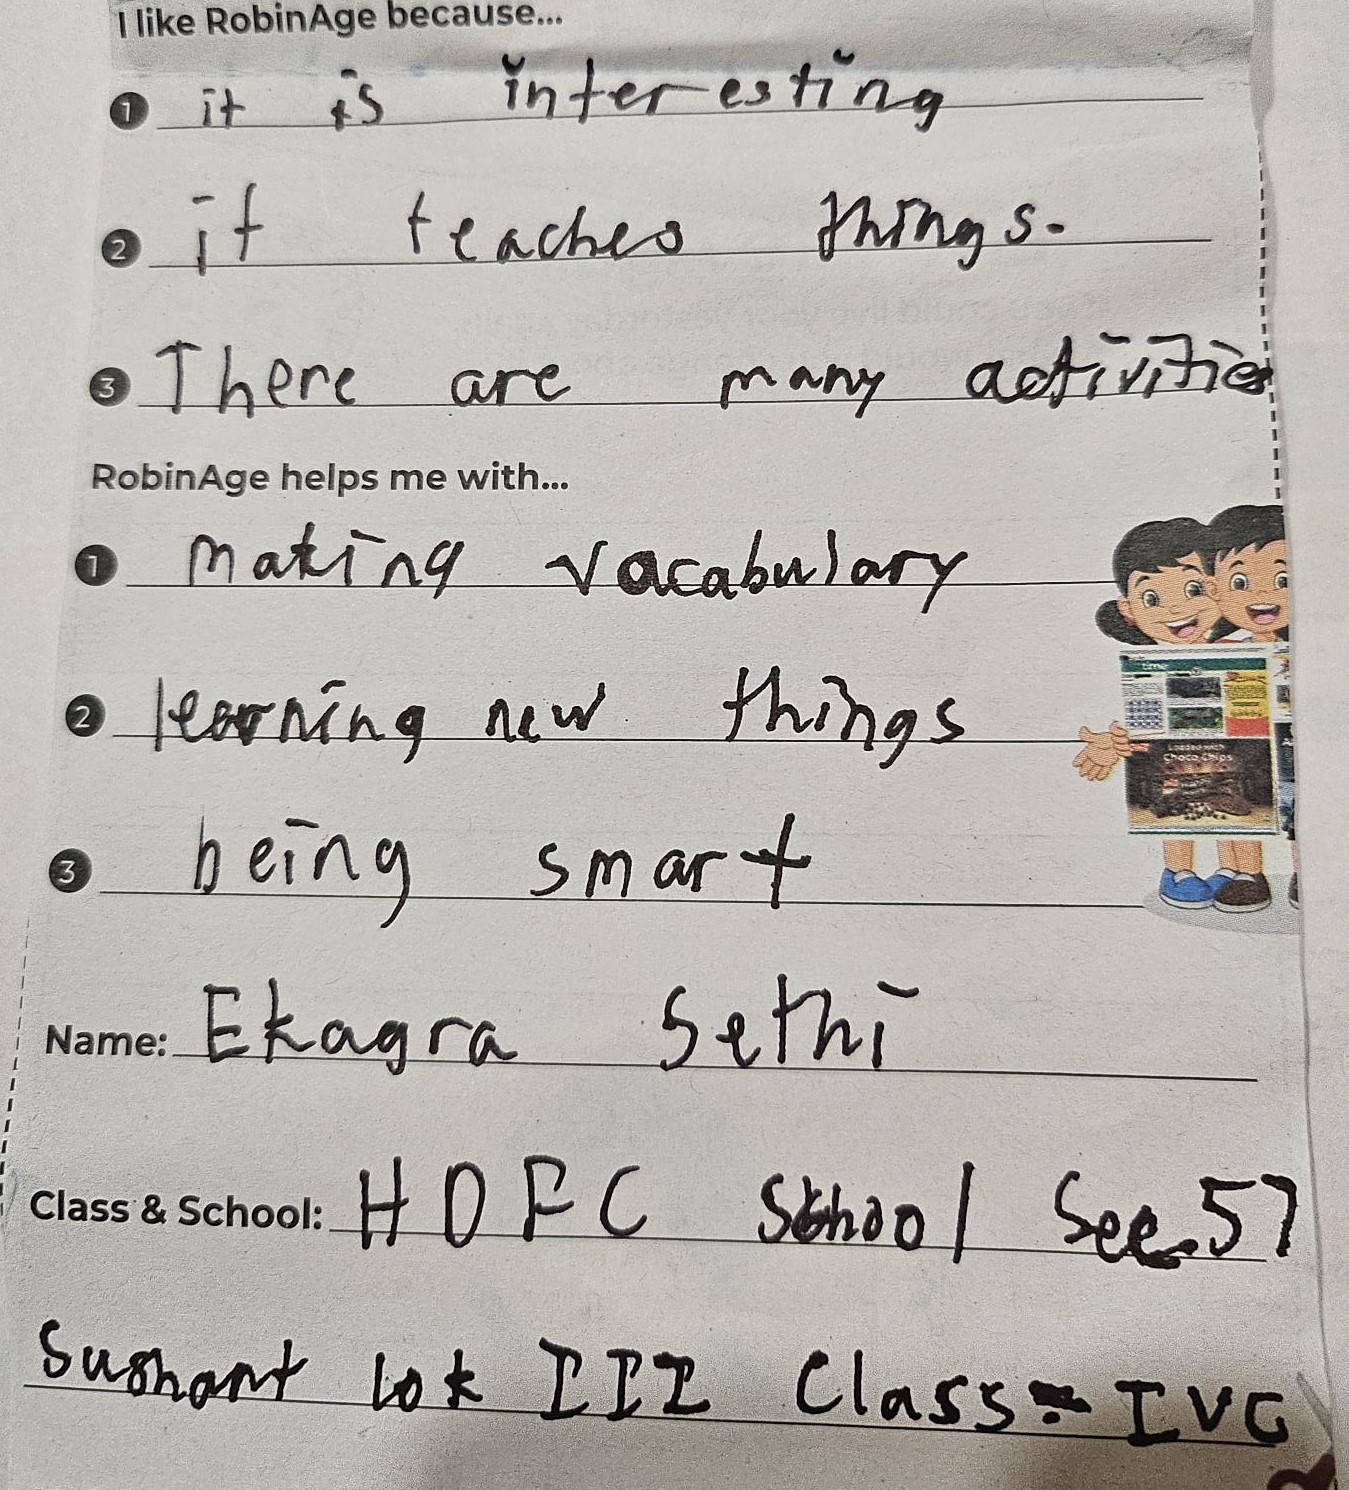 I like RobinAge because...
1 it is interesting
2 it teaches things.
3 There are many activities
RobinAge helps me with...
1 making vacabulary
2 learning new things
time
Loaded with
Choco Chips
3 being smart
Name: Ekagra Sethi
Class & School: HDFC School Sec.57
Sushant lok III Class = IVC